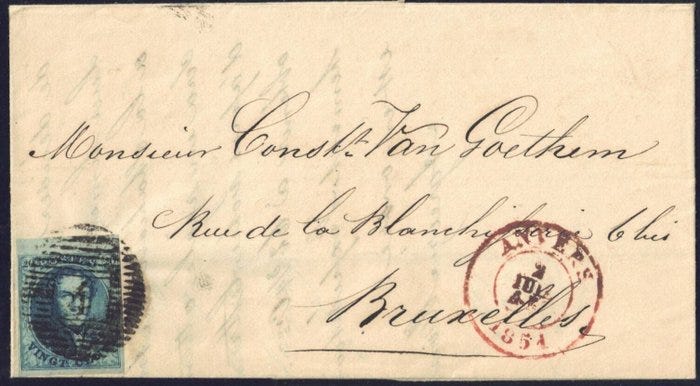 Monsieur Const. Van Goethem
Rue de la Blanchisserie 6 bis
Bruxelles
ANVERS
2
JUIL
1851
4
VINGT CENT